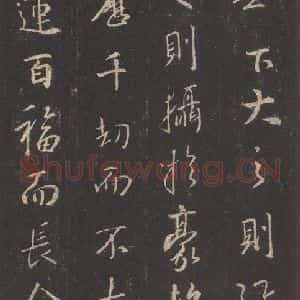 下大之則彌
則攝於豪
歷千劫而不古
運百福而長今
Shufawang.CN